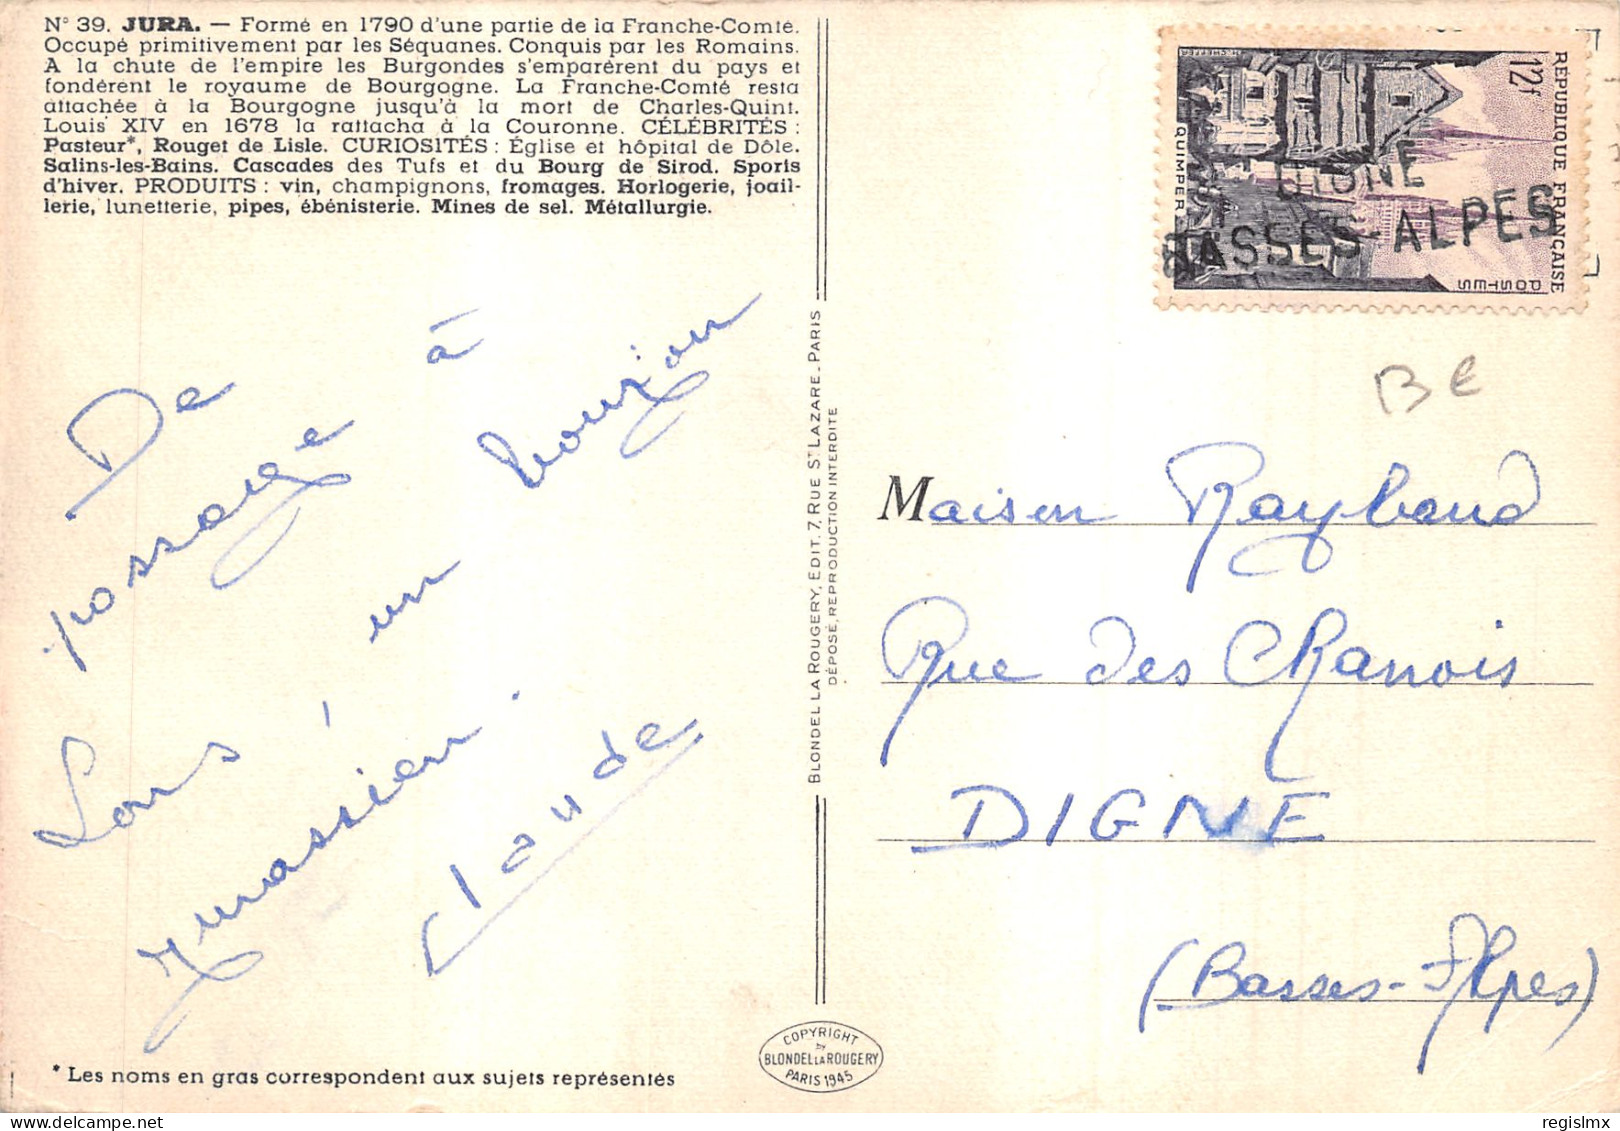 N° 39. JURA. — Formé en 1790 d'une partie de la Franche-Comté.
Occupé primitivement par les Séquanes. Conquis par les Romains.
A la chute de l'empire les Burgondes s'emparèrent du pays et
fondèrent le royaume de Bourgogne. La Franche-Comté resta
attachée à la Bourgogne jusqu'à la mort de Charles-Quint.
Louis XIV en 1678 la rattacha à la Couronne. CÉLÉBRITÉS :
Pasteur*, Rouget de Lisle. CURIOSITÉS : Église et hôpital de Dôle.
Salins-les-Bains. Cascades des Tufs et du Bourg de Sirod. Sports
d'hiver. PRODUITS : vin, champignons, fromages. Horlogerie, joail-
lerie, lunetterie, pipes, ébénisterie. Mines de sel. Métallurgie.
De
passage à
Lons un
Claude
* Les noms en gras correspondent aux sujets représentés
BLONDEL LA ROUGERY, EDIT. 7, RUE ST LAZARE. PARIS
DÉPOSÉ, REPRODUCTION INTERDITE
COPYRIGHT
by
BLONDEL LA ROUGERY
PARIS 1945
RÉPUBLIQUE FRANÇAISE
12f
POSTES
QUIMPER
DIGNE
BASSES-ALPES
B €
Maison Raybaud
Rue des Chanois
DIGNE
(Basses-Alpes)
regislmx